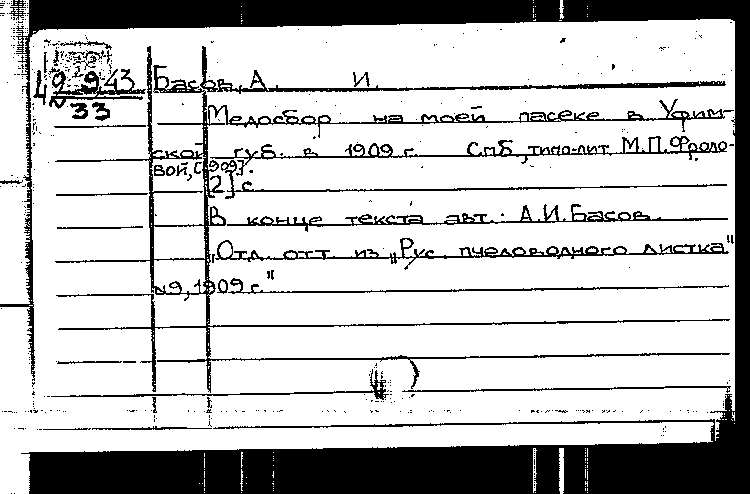 49 9.43
33
Басов, А. И.
Медосбор на моей пасеке в Уфим-
ской губ. в 1909 г. Спб, типо-лит. М.П.Фроло-
вой, [1909].
[2] с.
В конце текста авт.: А.И.Басов.
„Отд. отт из „Рус. пчеловодного листка"
№9, 1909 г."